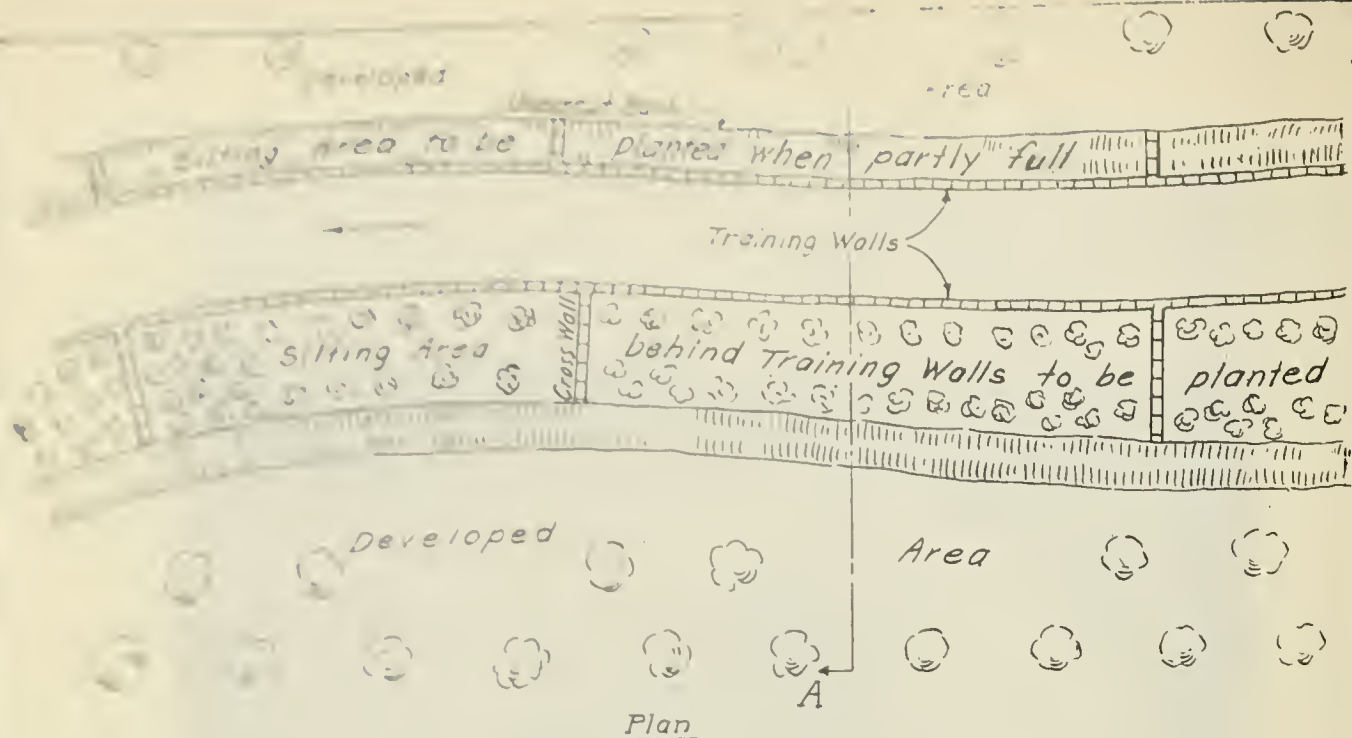 Developed Area
Silting Area to be planted when partly full
Training Walls
Cross Wall
Silting Area behind Training Walls to be planted
Developed Area
A
Plan